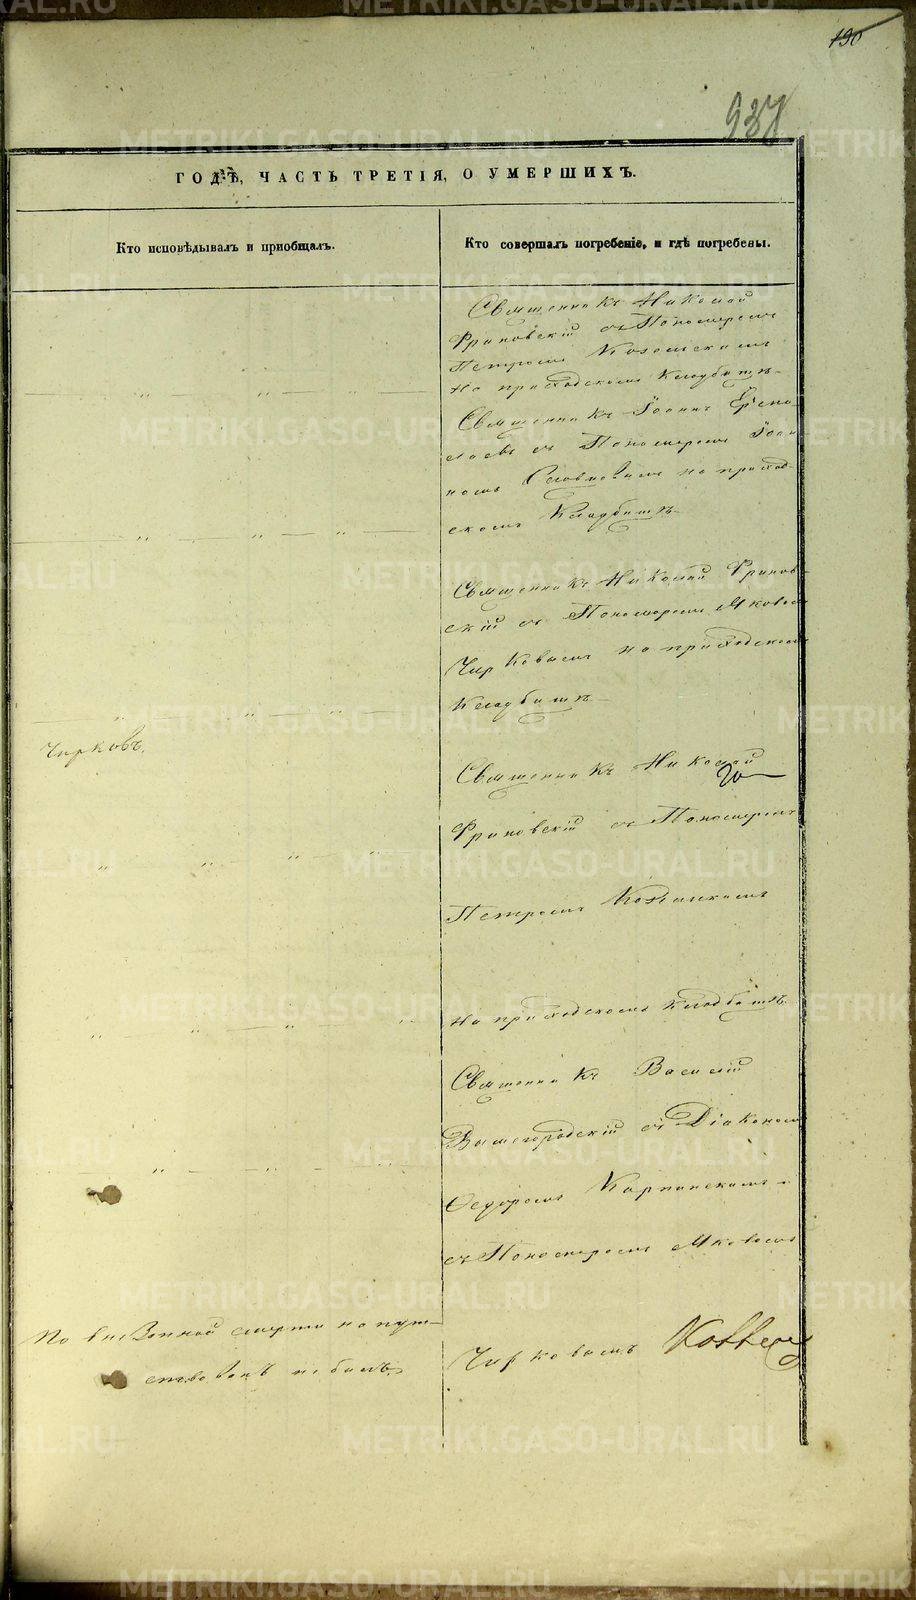 190
937
ГОДѢ, ЧАСТЬ ТРЕТІЯ, О УМЕРШИХЪ.
Кто исповѣдывалъ и пріобщалъ.
Кто совершалъ погребеніе, и гдѣ погребены.
Священникъ Николай
съ Пономаремъ
Петромъ
На приходскомъ Кладбищѣ
Священникъ Іоаннъ
съ Пономаремъ Іоан
номъ на приход
скомъ Кладбищѣ
Священникъ Николай
скій съ Пономаремъ Яковомъ
Чирковымъ на приходскомъ
Кладбищѣ
Чирковъ.
Священникъ Николай
съ Пономаремъ
Петромъ
На приходскомъ Кладбищѣ
Священникъ Василій
Вышегородскій съ Діакономъ
Ѳедоромъ Карпинскимъ
съ Пономаремъ Яковомъ
По смерти напут
ствованъ не былъ
Чирковымъ
METRIKI.GASO-URAL.RU